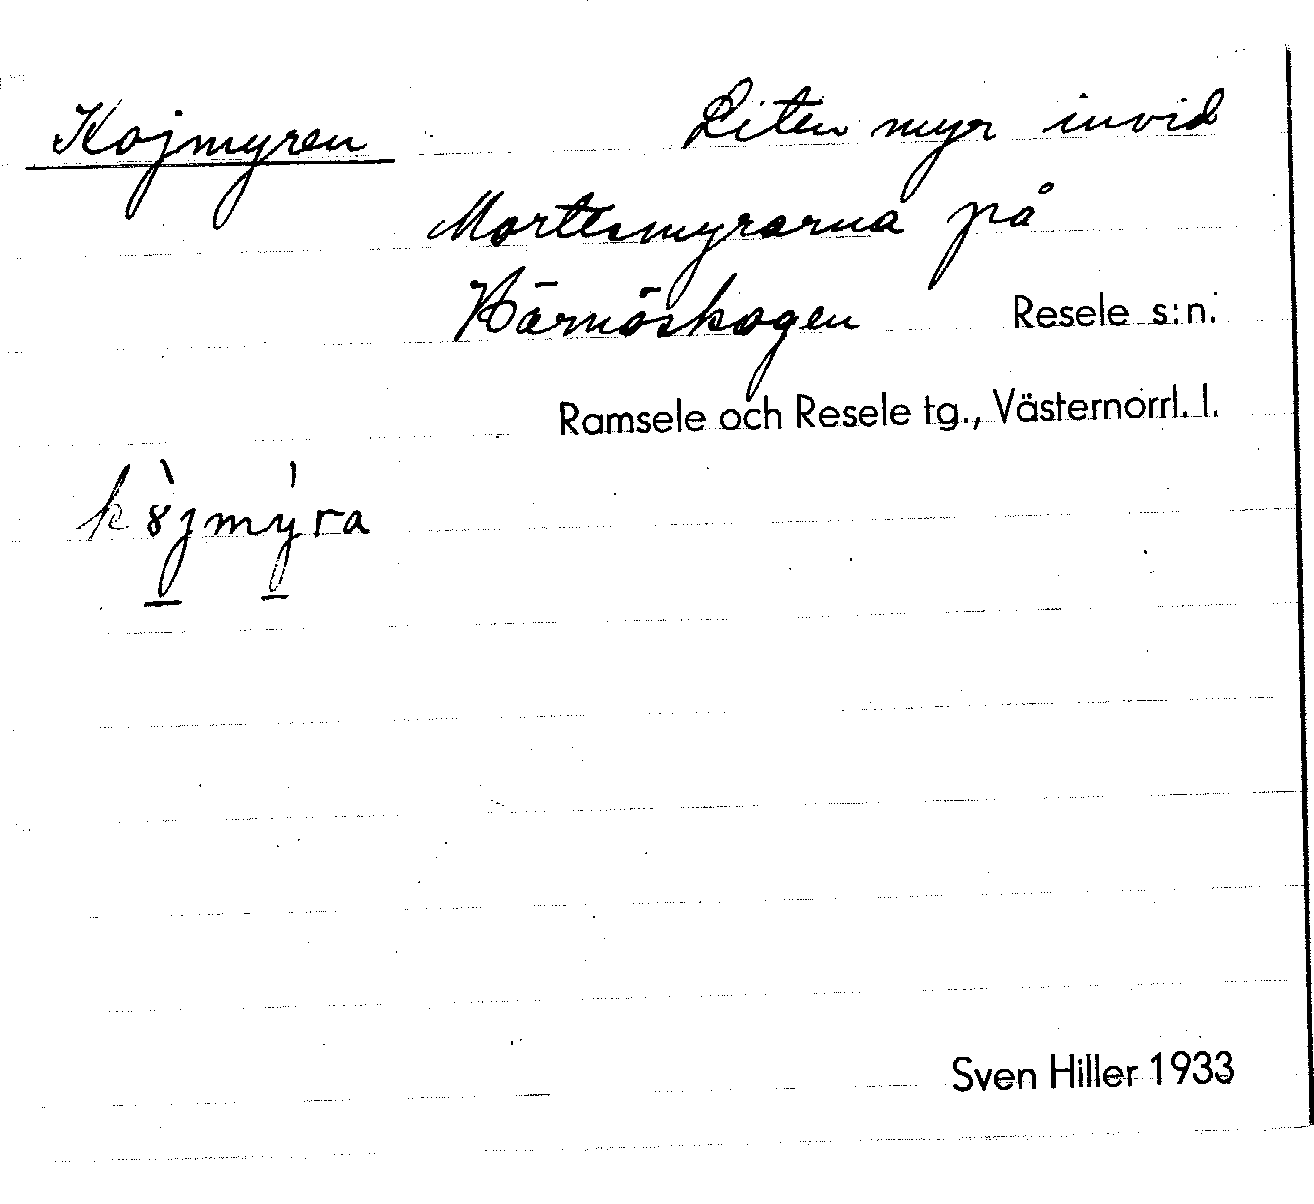 Kojmyren Liten myr invid
Morttmyrarna på
Härnöskogen Resele s:n.
Ramsele och Resele tg., Västernorrl. l.
k8̀jmýra
Sven Hiller 1933